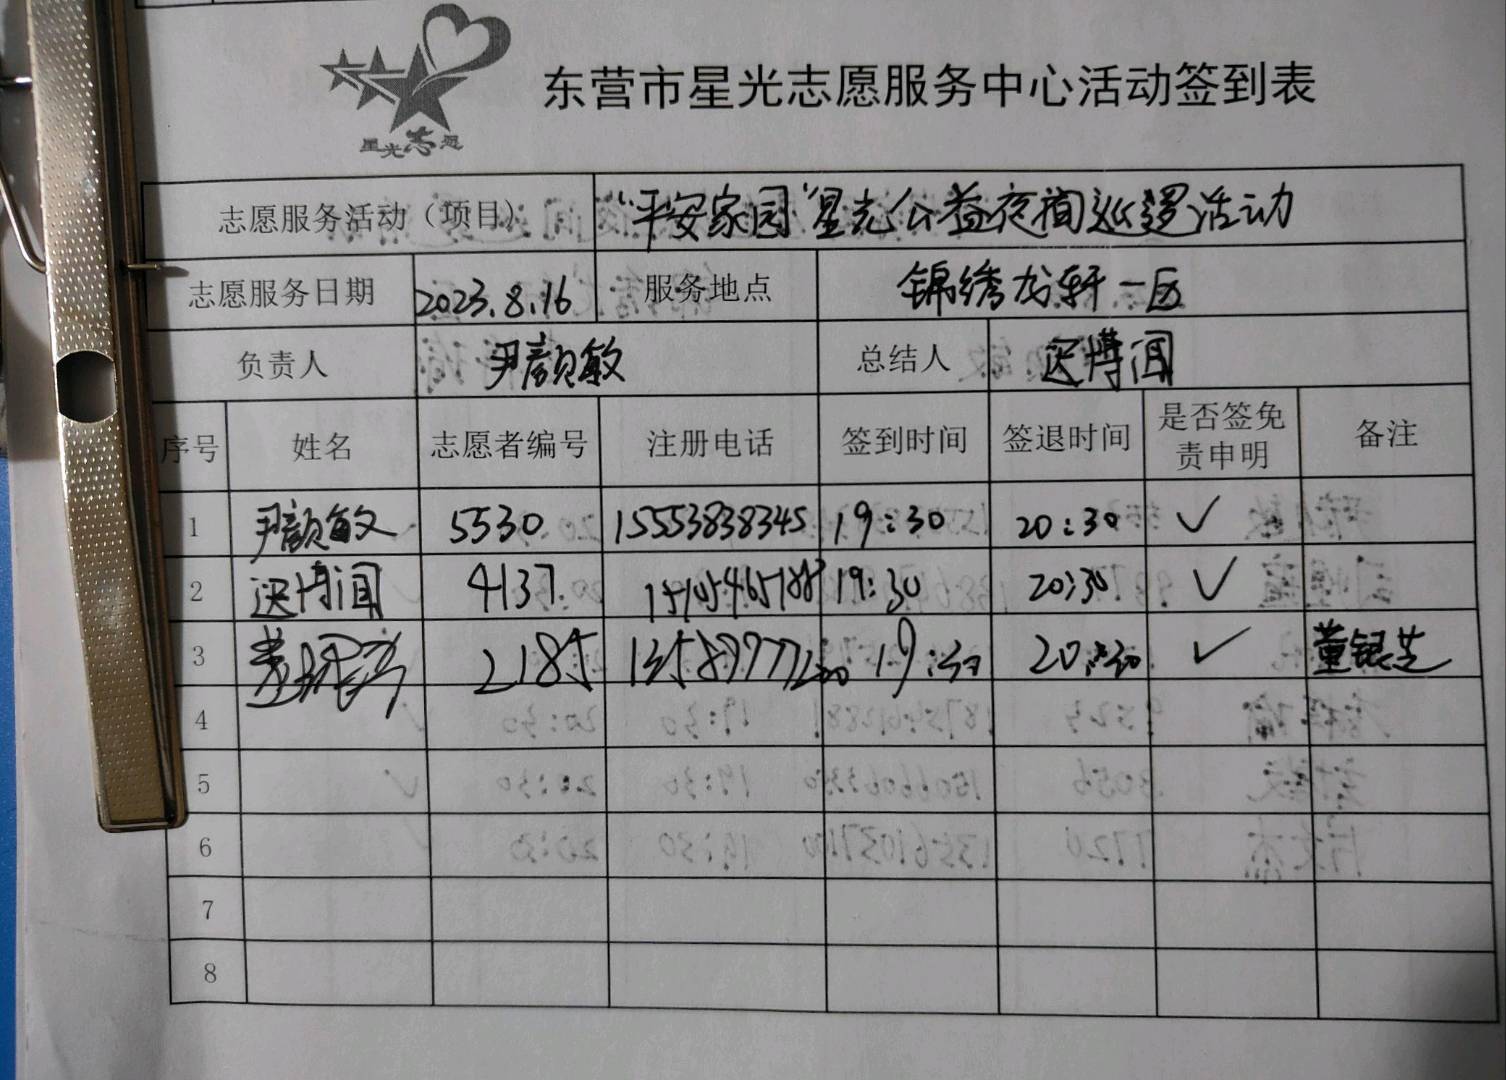 星光志愿
东营市星光志愿服务中心活动签到表
志愿服务活动（项目） “平安家园”星光公益夜间巡逻活动
志愿服务日期 2023.8.16 服务地点 锦绣龙轩一区
负责人 尹颜敏 总结人 迟博闻
序号 姓名 志愿者编号 注册电话 签到时间 签退时间 是否签免责申明 备注
1 尹颜敏 5530 15553838345 19:30 20:30 ✓
2 迟博闻 4137 19:30 20:30 ✓
3 董银芝 2185 19:30 20:30 ✓ 董银芝
4
5
6
7
8